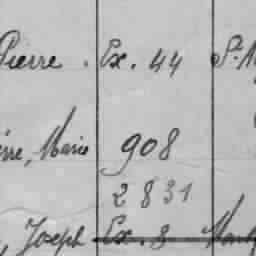 Pierre. Ex. 44 St.
Marie 908
2831
, Joseph Ex. 8